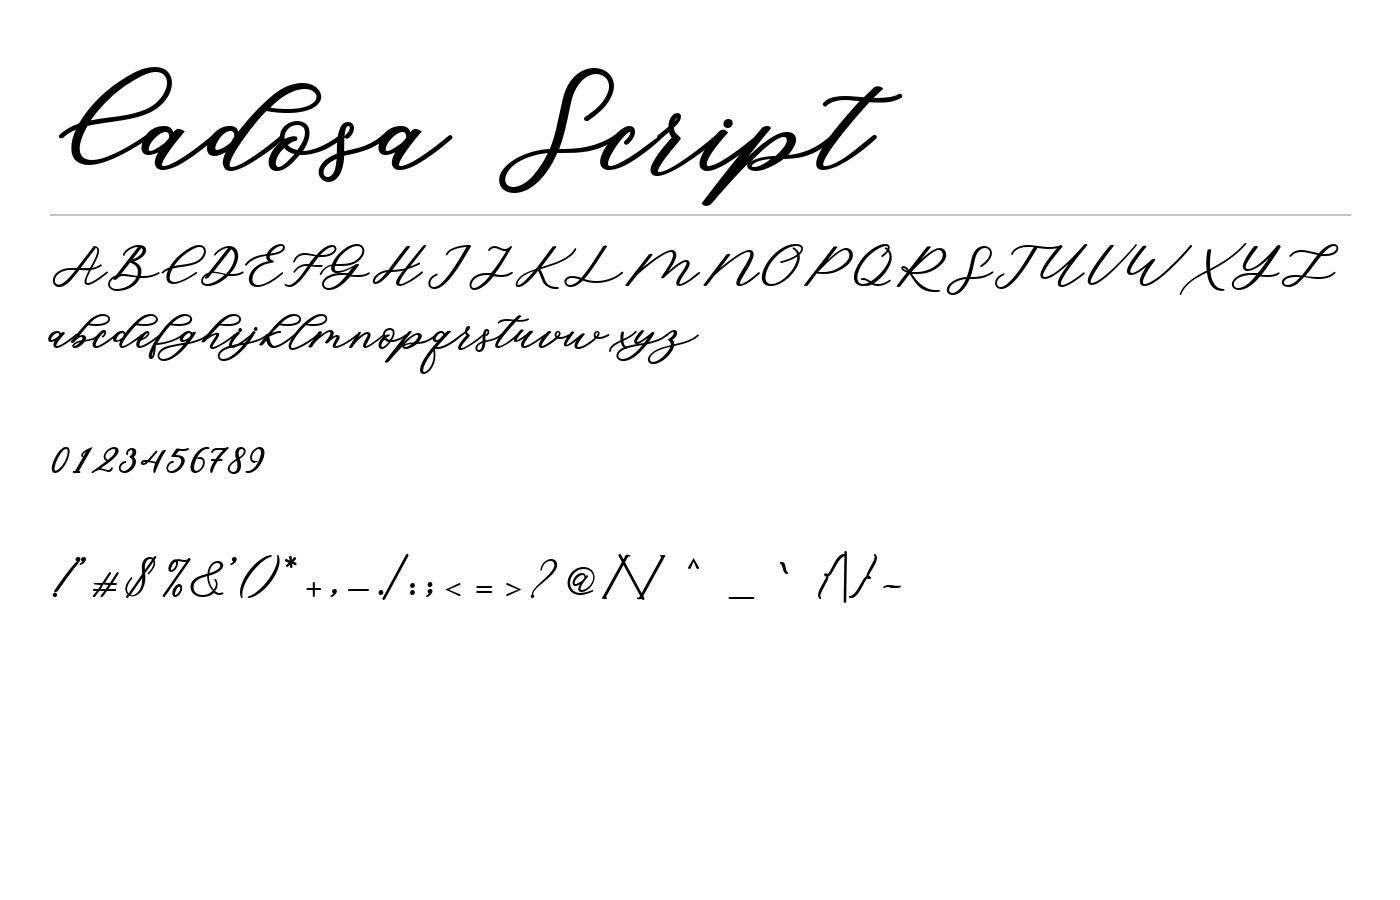 Cadosa Script
ABCDEFGHIJKLMNOPQRSTUVWXYZ
abcdefghijklmnopqrstuvwxyz
0123456789
!"#$%&'()*+,-./:;<=>?@[\]^_`{|}~